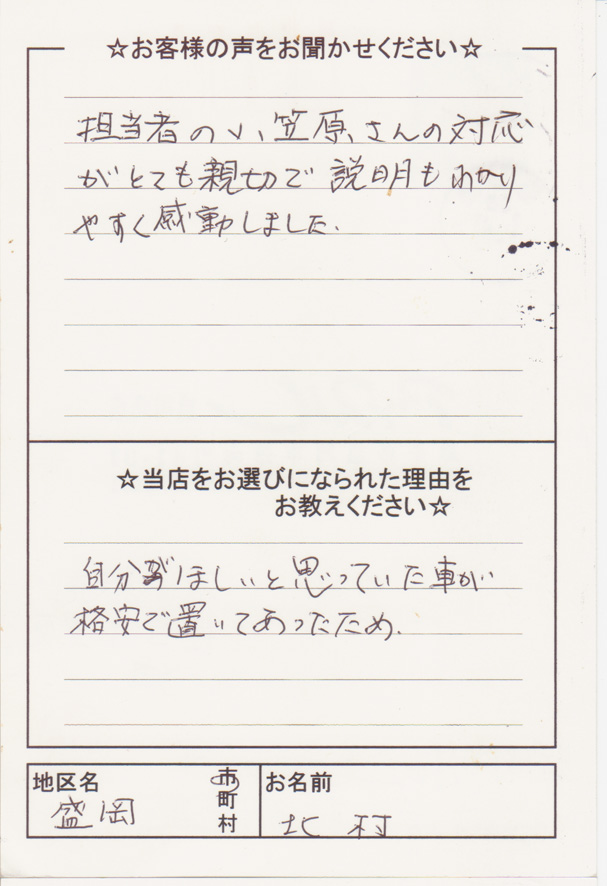 ☆お客様の声をお聞かせください☆
担当者の小笠原さんの対応
がとても親切で説明もわかり
やすく感動しました.
☆当店をお選びになられた理由を
お教えください☆
自分がほしいと思っていた車が
格安で置いてあったため.
地区名
盛岡
市
町
村
お名前
北村